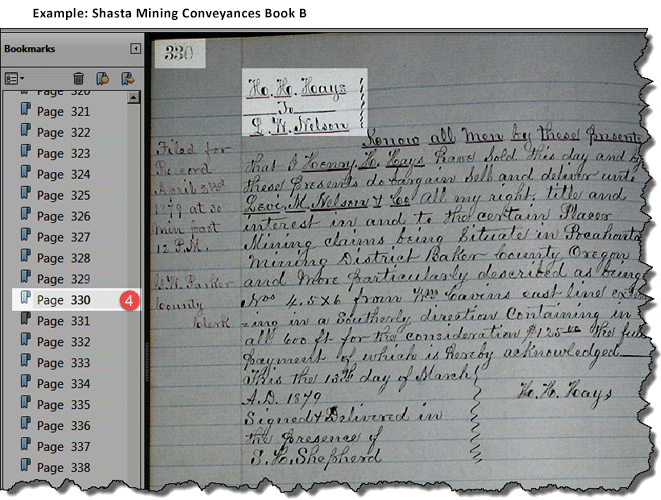 Example: Shasta Mining Conveyances Book B
Bookmarks
Page 320
Page 321
Page 322
Page 323
Page 324
Page 325
Page 326
Page 327
Page 328
Page 329
Page 330
4
Page 331
Page 332
Page 333
Page 334
Page 335
Page 336
Page 337
Page 338
330
H. H. Hays
To
L. M. Nelson
Filed for
Record
April
1879 at 30
min past
12 P.M.
Parker
County
Clerk
Know all Men by these presents
that I Henry H. Hays have sold this day and by
these presents do bargain sell and deliver unto
Levi M Nelson & Co all my right, title and
interest in and to the certain Placer
Mining claims being Situate in Pocahontas
Mining District Baker County Oregon
and more particularly described as being
Nos 4.5 & 6 from Wm east line
in a Southerly direction Containing in
all 600 ft for the consideration $125 the full
payment of which is hereby acknowledged
This the 13th day of March
A.D. 1879
H. H. Hays
Signed & Delivered in
the presence of
S. H. Shepherd